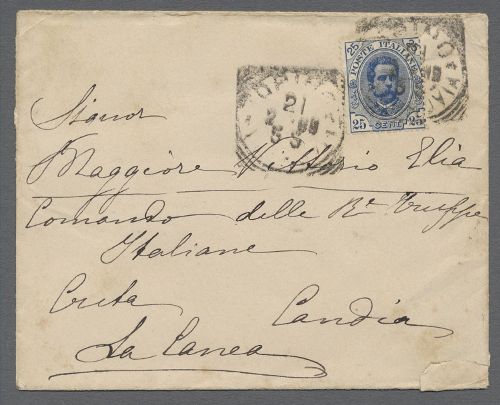 25 POSTE ITALIANE 25
25 CENT. 25
TORINO
21
2
99
Signor
Maggiore Vittorio Elia
Comando delle Re Truppe
Italiane
Creta Candia
La Canea